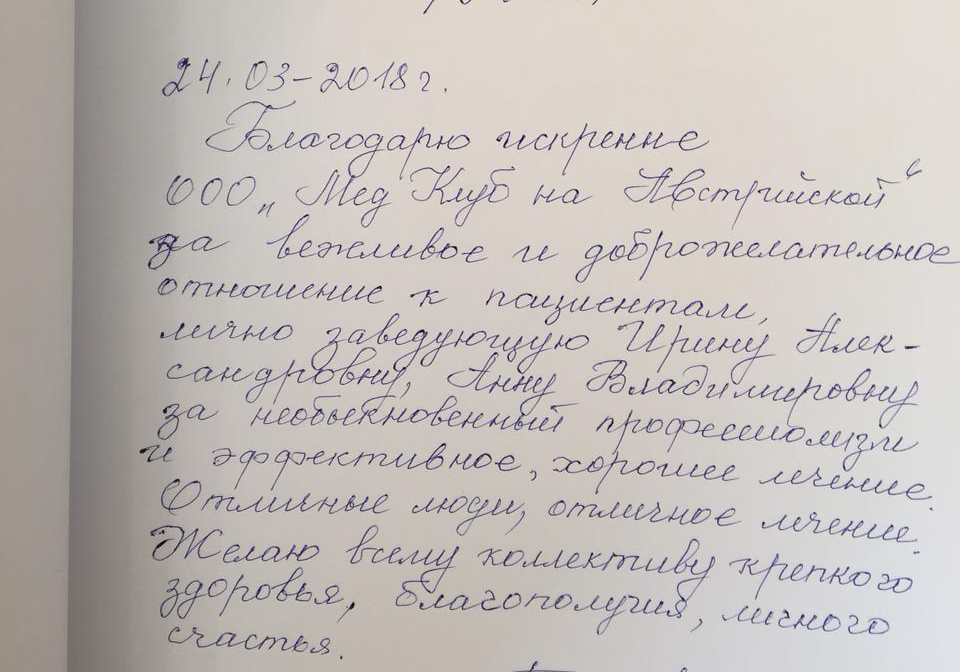 24.03-2018 г.
Благодарю искренне
ООО „Мед Клуб на Австрийской“
за вежливое и доброжелательное
отношение к пациентам,
лично заведующую Ирину Алек-
сандровну, Анну Владимировну
за необыкновенный профессиолизм
и эффективное, хорошее лечение.
Отличные люди, отличное лечение.
Желаю всему коллективу крепкого
здоровья, благополучия, личного
счастья.